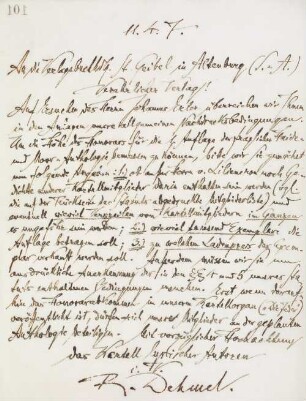 101
11. 4. 7.
An die Verlagsbuchhdlg. St. Geibel in Altenburg (S.-A.)
Verehrlicher Verlag!
Auf Ersuchen des Herrn Johannes überreichen wir Ihnen
in den Anlagen unsere Nachdrucksbedingungen.
Um die Höhe des Honorars für die Auflage der geplanten Heide-
und Moor-Anthologie bemessen zu können, bitte wir Sie zunächst
um folgende Angaben: 1) ob außer Herrn v. Liliencron noch Ge-
dichte anderer Kartellmitglieder darin enthalten sein werden (vgl.
die auf der Rückseite der Statuten abgedruckte Mitgliederliste) und
eventuell wieviel Verszeilen von Kartellmitgliedern im Ganzen
es ungefähr sein werden; 2) wie viel tausend Exemplare die
Auflage betragen soll; 3) zu welchem Ladenpreis das Exem-
plar verkauft werden soll. Außerdem müssen wir Sie um
ausdrückliche Anerkennung der in den §§ und 5 unserer
enthaltenen Bedingungen ersuchen. Erst wenn
das Honorarabkommen in unserm Kartellorgan
veröffentlicht ist, dürfen sich unsere Mitglieder an der geplanten
Anthologie beteiligen. Mit vorzüglicher Hochachtung
das Kartell lyrischer Autoren
R. Dehmel.